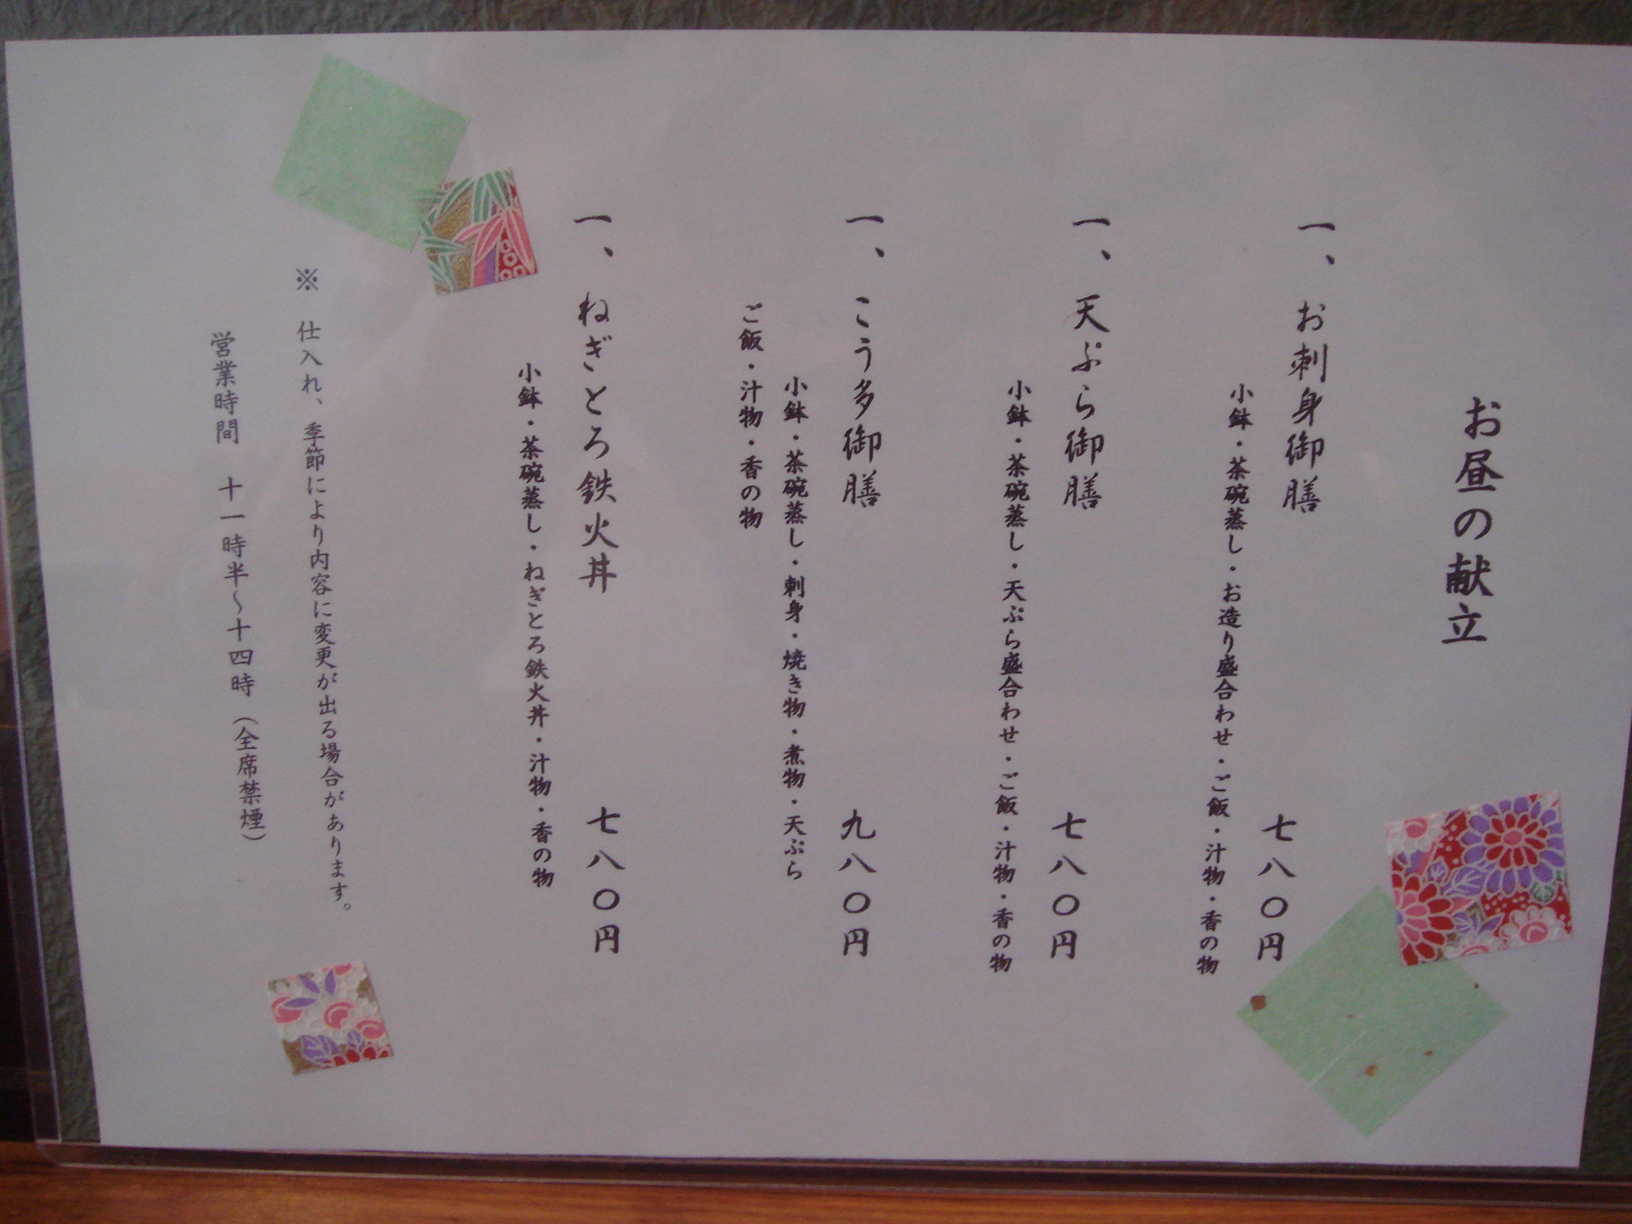 お昼の献立
一、お刺身御膳 七八〇円
小鉢・茶碗蒸し・お造り盛合わせ・ご飯・汁物・香の物
一、天ぷら御膳 七八〇円
小鉢・茶碗蒸し・天ぷら盛合わせ・ご飯・汁物・香の物
一、こう多御膳 九八〇円
小鉢・茶碗蒸し・刺身・焼き物・煮物・天ぷら
ご飯・汁物・香の物
一、ねぎとろ鉄火丼 七八〇円
小鉢・茶碗蒸し・ねぎとろ鉄火丼・汁物・香の物
※ 仕入れ、季節により内容に変更が出る場合があります。
営業時間 十一時半～十四時（全席禁煙）